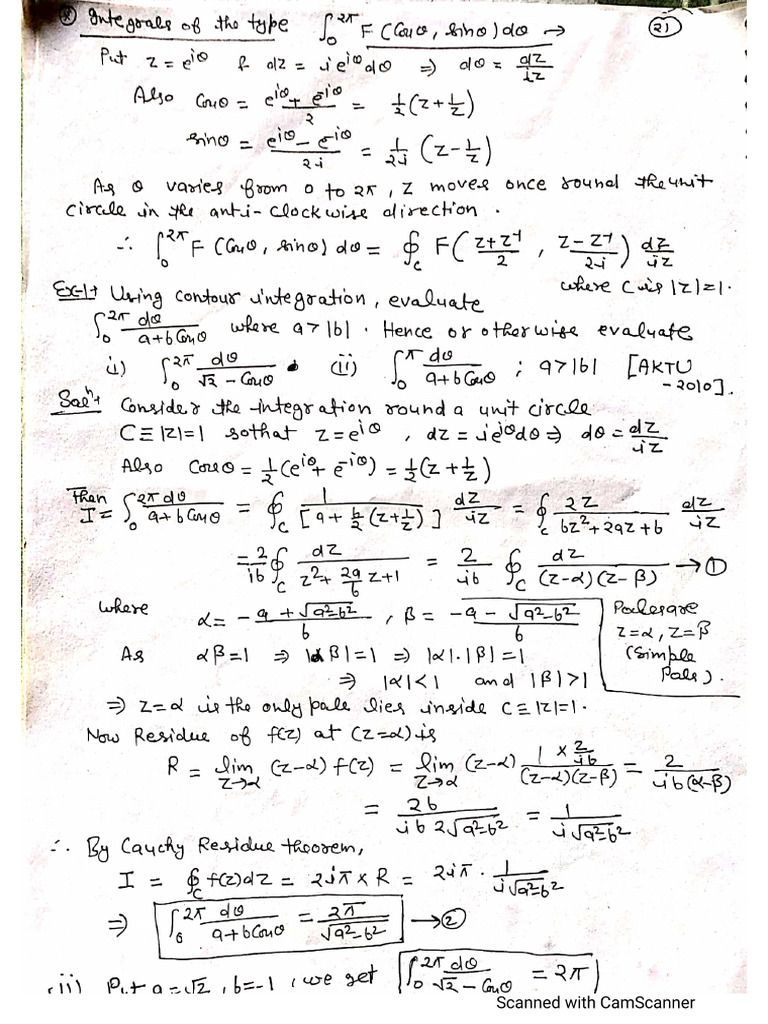 (*) Integrals of the type ∫₀^2π F(Cosθ, sinθ)dθ → (21)
Put z = e^iθ & dz = ie^iθ dθ ⇒ dθ = dz/iz
Also Cosθ = (e^iθ + e^-iθ)/2 = 1/2(z + 1/z)
sinθ = (e^iθ - e^-iθ)/2i = 1/2i (z - 1/z)
As θ varies from 0 to 2π, z moves once round the unit
circle in the anti-clockwise direction.
∴ ∫₀^2π F(Cosθ, sinθ) dθ = ∮_C F((z+z^-1)/2, (z-z^-1)/2i) dz/iz
where C is |z|=1.
Ex-1→ Using contour integration, evaluate
∫₀^2π dθ/(a+bCosθ) where a>|b|. Hence or otherwise evaluate
i) ∫₀^2π dθ/(√2 - Cosθ) (ii) ∫₀^π dθ/(a+bCosθ) ; a>|b| [AKTU
-2010].
Solⁿ→ Consider the integration round a unit circle
C≡|z|=1 so that z=e^iθ, dz=ie^iθ dθ ⇒ dθ = dz/iz
Also Cosθ = 1/2(e^iθ + e^-iθ) = 1/2(z + 1/z)
Then I = ∫₀^2π dθ/(a+bCosθ) = ∮_C 1/[a + b/2(z+1/z)] dz/iz = ∮_C 2z/(bz²+2az+b) dz/iz
= 2/ib ∮_C dz/(z² + 2a/b z + 1) = 2/ib ∮_C dz/((z-α)(z-β)) → ①
where α = (-a + √(a²-b²))/b, β = (-a - √(a²-b²))/b
Poles are
z=α, z=β
(simple
Pols).
As αβ=1 ⇒ |αβ|=1 ⇒ |α|.|β|=1
⇒ |α|<1 and |β|>1
⇒ z=α is the only pole lies inside C≡|z|=1.
Now Residue of f(z) at (z=α) is
R = lim_z→α (z-α) f(z) = lim_z→α (z-α) (1 × 2/ib)/((z-α)(z-β)) = 2/(ib(α-β))
= 2b/(ib 2√(a²-b²)) = 1/(i√(a²-b²))
∴ By Cauchy Residue theorem,
I = ∮_C f(z)dz = 2iπ × R = 2iπ · 1/(i√(a²-b²))
⇒ ∫₀^2π dθ/(a+bCosθ) = 2π/√(a²-b²) → ②
(ii) Put a=√2, b=-1, we get ∫₀^2π dθ/(√2 - Cosθ) = 2π
Scanned with CamScanner